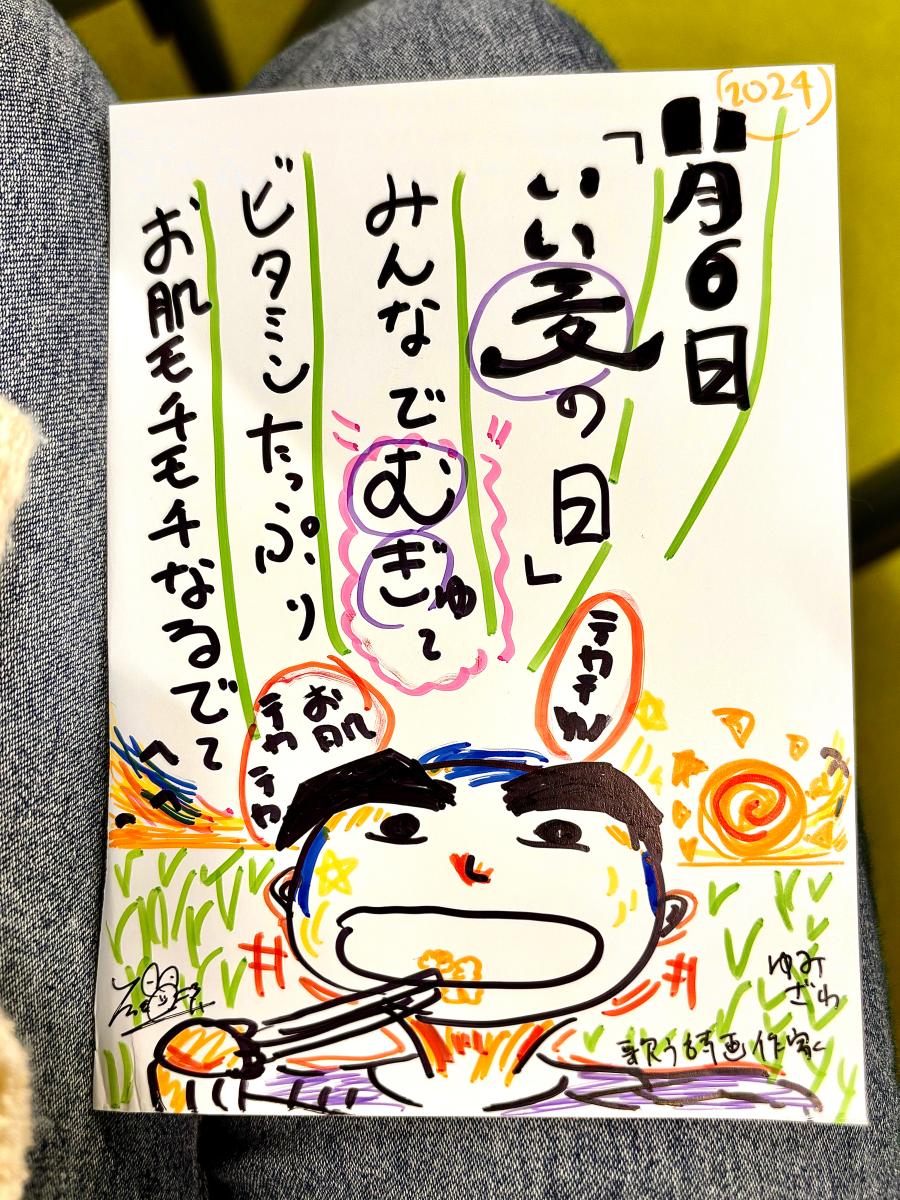 (2024)
11月6日
「いい麦の日」
みんなでむぎゅって
ビタミンたっぷり
お肌モチモチなるでって
テカテカ
お肌
テカテカ
ゆみ
ざわ
歌う詩画作家